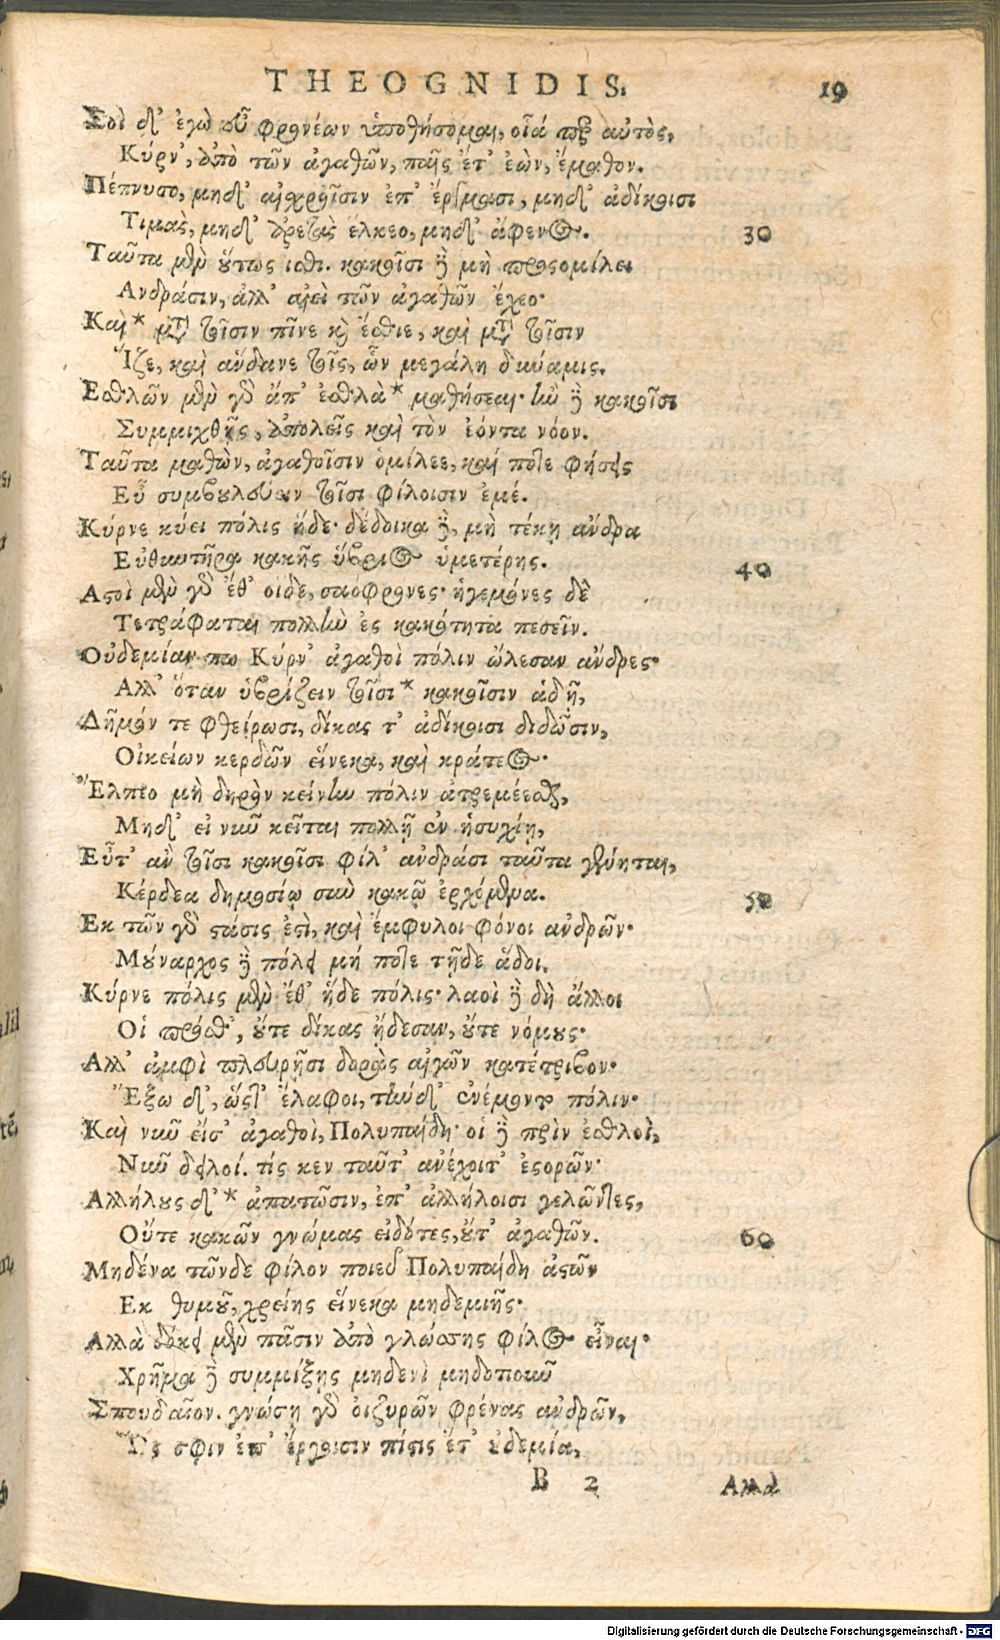 THEOGNIDIS. 19
Σοὶ δ' ἐγὼ εὖ φρονέων ὑποθήσομαι, οἷά περ αὐτὸς,
Κύρν', ἀπὸ τῶν ἀγαθῶν, παῖς ἔτ' ἐὼν, ἔμαθον.
Πέπνυσο, μηδ' αἰχροῖσιν ἐπ' ἔργμασι, μηδ' ἀδίκοισι
Τιμὰς, μηδ' ἀρετὰς ἕλκεο, μηδ' ἄφενος. 30
Ταῦτα μὲν οὕτως ἴσθι. κακοῖσι δὲ μὴ προςομίλει
Ανδράσιν, ἀλλ' αἰεὶ τῶν ἀγαθῶν ἔχεο·
Καὶ * μετὰ τοῖσιν πῖνε καὶ ἔσθιε, καὶ μετὰ τοῖσιν
Ἵζε, καὶ ἅνδανε τοῖς, ὧν μεγάλη δύναμις.
Εσθλῶν μὲν γὰρ ἄπ' ἐσθλὰ * μαθήσεαι· ἢν δὲ κακοῖσι
Συμμιχθῇς, ἀπολεῖς καὶ τὸν ἐόντα νόον.
Ταῦτα μαθὼν, ἀγαθοῖσιν ὁμίλεε, καί ποτε φήσεις
Εὖ συμβουλεύειν τοῖσι φίλοισιν ἐμέ.
Κύρνε κύει πόλις ἥδε· δέδοικα δὲ, μὴ τέκῃ ἄνδρα
Εὐθυντῆρα κακῆς ὕβριος ὑμετέρης. 40
Αςοὶ μὲν γὰρ ἔθ' οἵδε, σαόφρονες· ἡγεμόνες δὲ
Τετράφαται πολλὴν ἐς κακότητα πεσεῖν.
Οὐδεμίαν πω Κύρν' ἀγαθοὶ πόλιν ὤλεσαν ἄνδρες·
Αλλ' ὅταν ὑβρίζειν τοῖσι * κακοῖσιν ἁδῇ,
Δῆμόν τε φθείρωσι, δίκας τ' ἀδίκοισι διδῶσιν,
Οἰκείων κερδῶν εἵνεκα, καὶ κράτεος·
Ἔλπεο μὴ δηρὸν κείνην πόλιν ἀτρεμέεσθαι,
Μηδ' εἰ νῦν κεῖται πολλῇ ἐν ἡσυχίῃ,
Εὖτ' ἂν τοῖσι κακοῖσι φίλ' ἀνδράσι ταῦτα γένηται,
Κέρδεα δημοσίῳ σὺν κακῷ ἐρχόμενα. 50
Εκ τῶν γὰρ ςάσις ἐςὶ, καὶ ἔμφυλοι φόνοι ἀνδρῶν·
Μούναρχος δὲ πόλει μή ποτε τῇδε ἅδοι.
Κύρνε πόλις μὲν ἔθ' ἥδε πόλις· λαοὶ δὲ δὴ ἄλλοι
Οἱ πρόσθ', οὔτε δίκας ᾔδεσαν, οὔτε νόμους·
Αλλ' ἀμφὶ πλευρῇσι δορὰς αἰγῶν κατέτριβον·
Ἔξω δ', ὥςτ' ἔλαφοι, τήνδ' ἐνέμοντο πόλιν·
Καὶ νῦν εἴσ' ἀγαθοὶ, Πολυπαίδη· οἱ δὲ πρὶν ἐσθλοὶ,
Νῦν δειλοί. τίς κεν ταῦτ' ἀνέχοιτ' ἐσορῶν·
Αλλήλους δ' * ἀπατῶσιν, ἐπ' ἀλλήλοισι γελῶντες,
Οὔτε κακῶν γνώμας εἰδότες, οὔτ' ἀγαθῶν. 60
Μηδένα τῶνδε φίλον ποιεῦ Πολυπαίδη ἀςῶν
Εκ θυμοῦ, χρείης εἵνεκα μηδεμιῆς·
Αλλὰ δόκει μὲν πᾶσιν ἀπὸ γλώσσης φίλος εἶναι·
Χρῆμα δὲ συμμίξῃς μηδενὶ μηδοτιοῦν
Σπουδαῖον. γνώσῃ γὰρ ὀϊζυρῶν φρένας ἀνδρῶν,
Ὥς σφιν ἐπ' ἔργοισιν πίςις ἔτ' οὐδεμία,
B 2 Αλλὰ
Digitalisierung gefördert durch die Deutsche Forschungsgemeinschaft - DFG